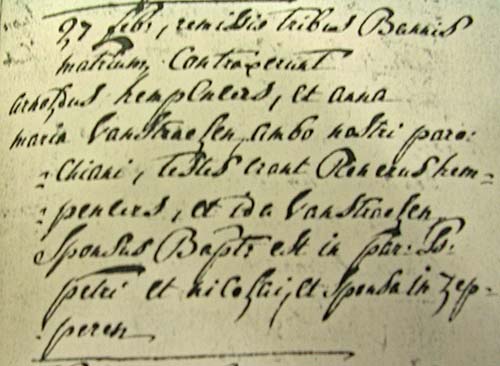 27 feb:, remissis tribus Bannis
matrium Contraxerunt
arnoldus hempeneers, et anna
maria Vanstraesen ambo nostri paro-
-chiani, testes erant Renerus hem-
-peneers, et ida Vanstraesen
Sponsus Bapt: est in par: Ss:
petri et nicolai, et Sponsa in zep-
-peren